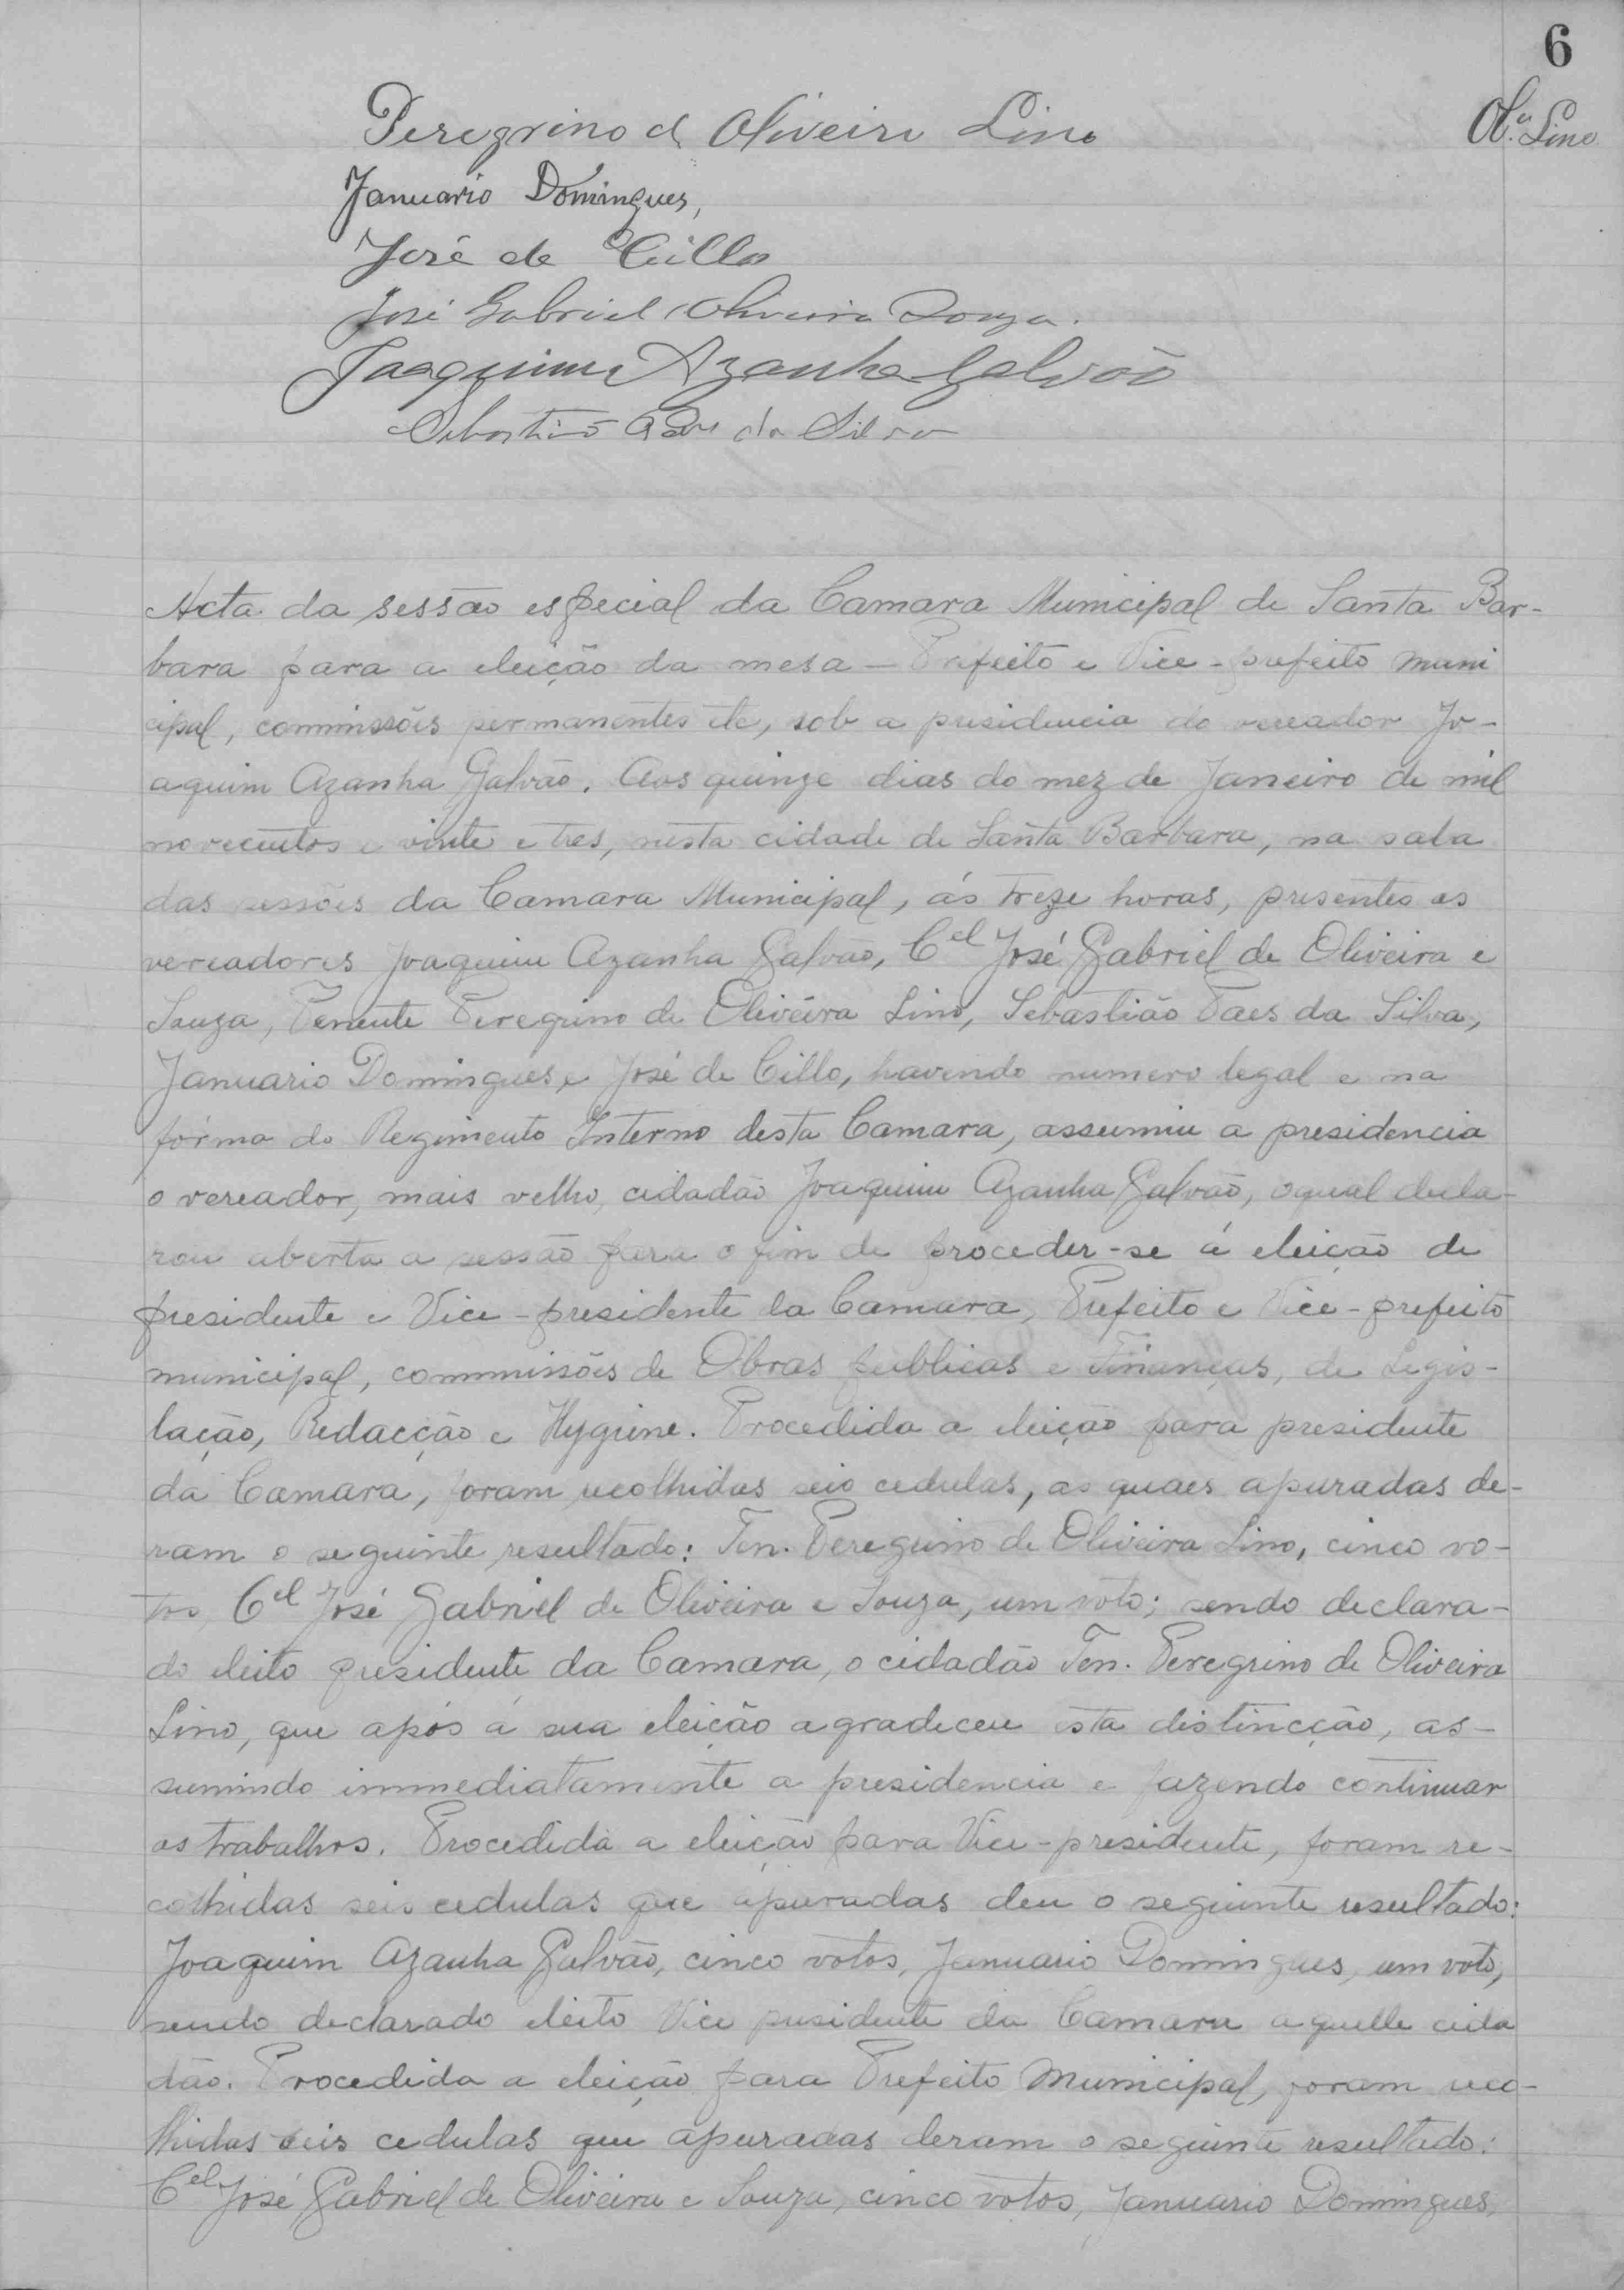 6
Olª. Lino
Peregrino d Oliveira Lino
Januario Domingues,
José de Cillo
José Gabriel Oliveira Souza.
Joaquim Azanha Galvão
Sebastião da Silva
Acta da sessão especial da Camara Municipal de Santa Bar-
bara para a eleição da mesa - Prefeito e Vice-prefeito muni
cipal, commissões permanentes etc, sob a presidencia do vereador Jo-
aquim Azanha Galvão. Aos quinze dias do mez de Janeiro de mil
novecentos e vinte e tres, nesta cidade de Santa Barbara, na sala
das sessões da Camara Municipal, ás treze horas, presentes os
vereadores Joaquim Azanha Galvão, Cel José Gabriel de Oliveira e
Souza, Tenente Peregrino de Oliveira Lino, Sebastião Paes da Silva,
Januario Domingues e José de Cillo, havendo numero legal e na
fórma do Regimento Interno desta Camara, assumiu a presidencia
o vereador, mais velho, cidadão Joaquim Azanha Galvão, o qual decla-
rou aberta a sessão para o fim de proceder-se á eleição de
presidente e Vice-presidente da Camara, Prefeito e Vice-prefeito
municipal, commissões de Obras publicas e Finanças, de Legis-
lação, Redacção e Hygiene. Procedida a eleição para presidente
da Camara, foram recolhidas seis cedulas, as quaes apuradas de-
ram o seguinte resultado: Ten. Peregrino de Oliveira Lino, cinco vo-
tos, Cel José Gabriel de Oliveira e Souza, um voto; sendo declara-
do eleito presidente da Camara, o cidadão Ten. Peregrino de Oliveira
Lino, que após á sua eleição agradeceu esta distincção, as-
sumindo immediatamente a presidencia e fazendo continuar
os trabalhos. Procedida a eleição para Vice-presidente, foram re-
colhidas seis cedulas que apuradas deu o seguinte resultado:
Joaquim Azanha Galvão, cinco votos, Januario Domingues, um voto,
sendo declarado eleito Vice presidente da Camara aquelle cida
dão. Procedida a eleição para Prefeito Municipal, foram reco-
lhidas seis cedulas que apuradas deram o seguinte resultado:
Cel José Gabriel de Oliveira e Souza, cinco votos, Januario Domingues,